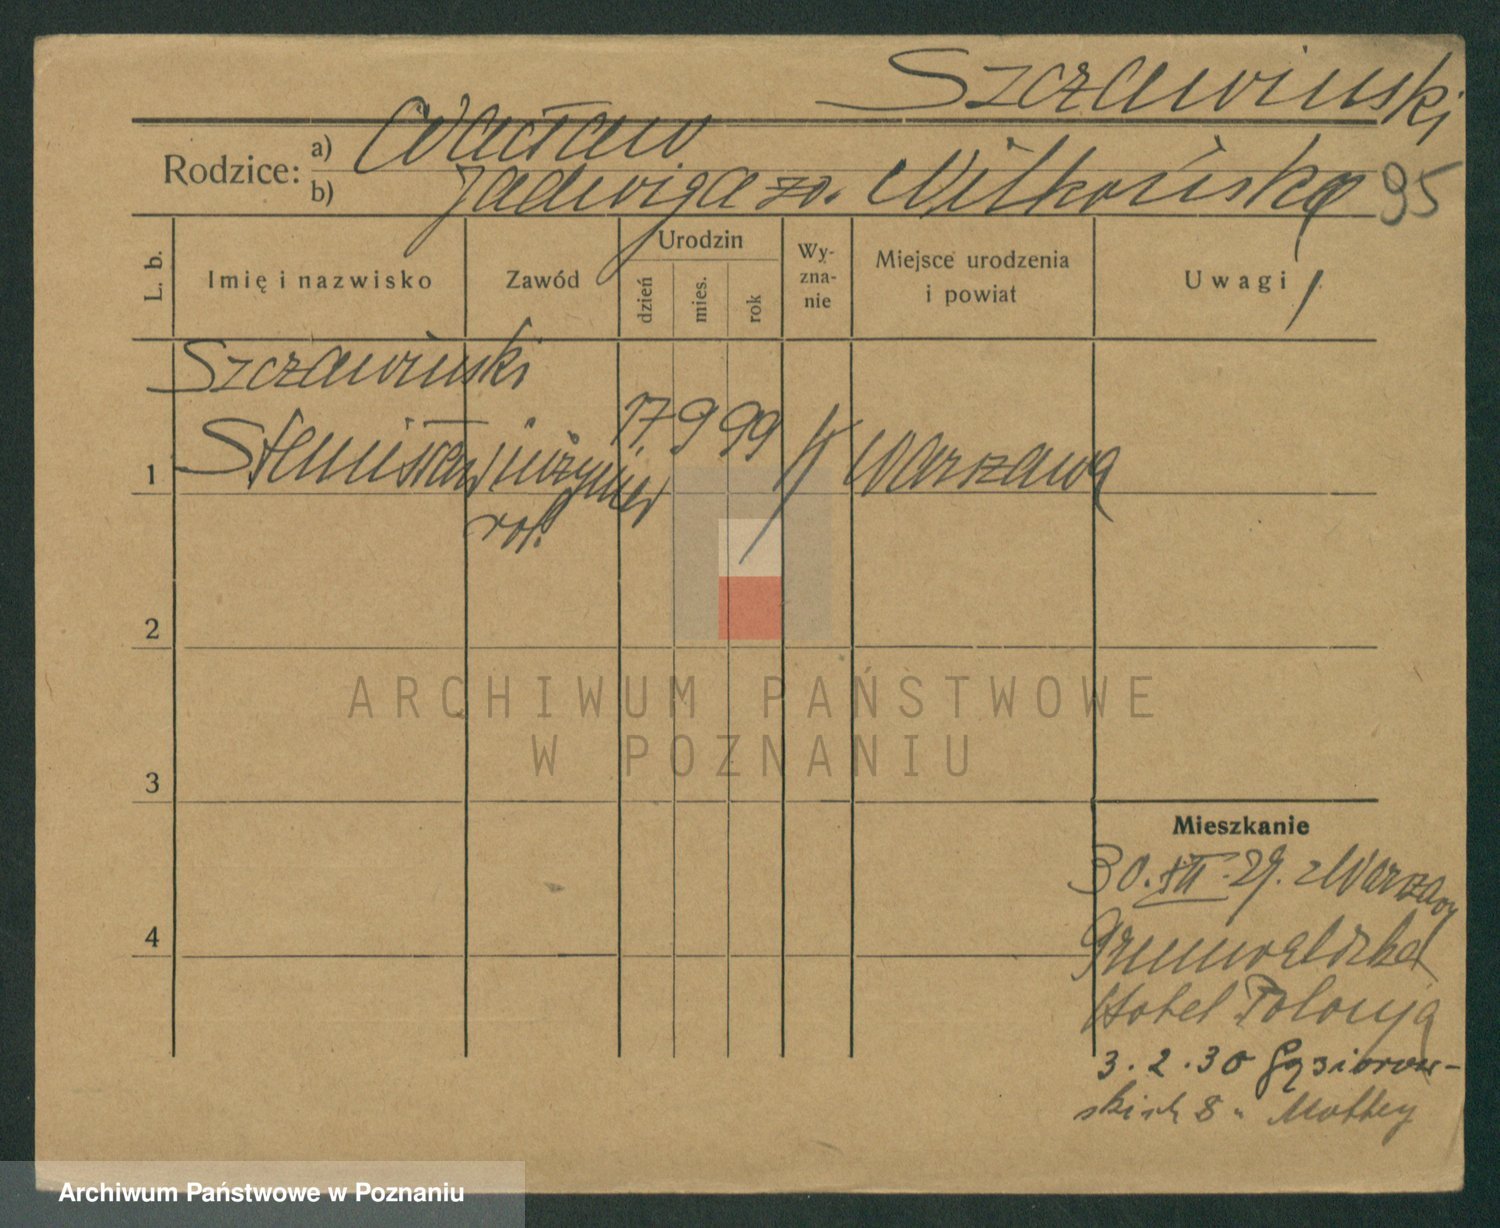 Szczawiński
Rodzice: a) Wacław
b) Jadwiga zd. Witkowska 95
L. b. Imię i nazwisko Zawód Urodzin dzień mies. rok Wy-zna-nie Miejsce urodzenia i powiat Uwagi
Szczawiński
1 Stanisław inżynier 17 9 99 Warszawa
rol.
2
3
Mieszkanie
30. XII. 29. z Warszawy
4 Grunwaldzka
Hotel Polonja
3. 2. 30 Gąsiorow-
skich 8 u Mottey
ARCHIWUM PAŃSTWOWE
W POZNANIU
Archiwum Państwowe w Poznaniu